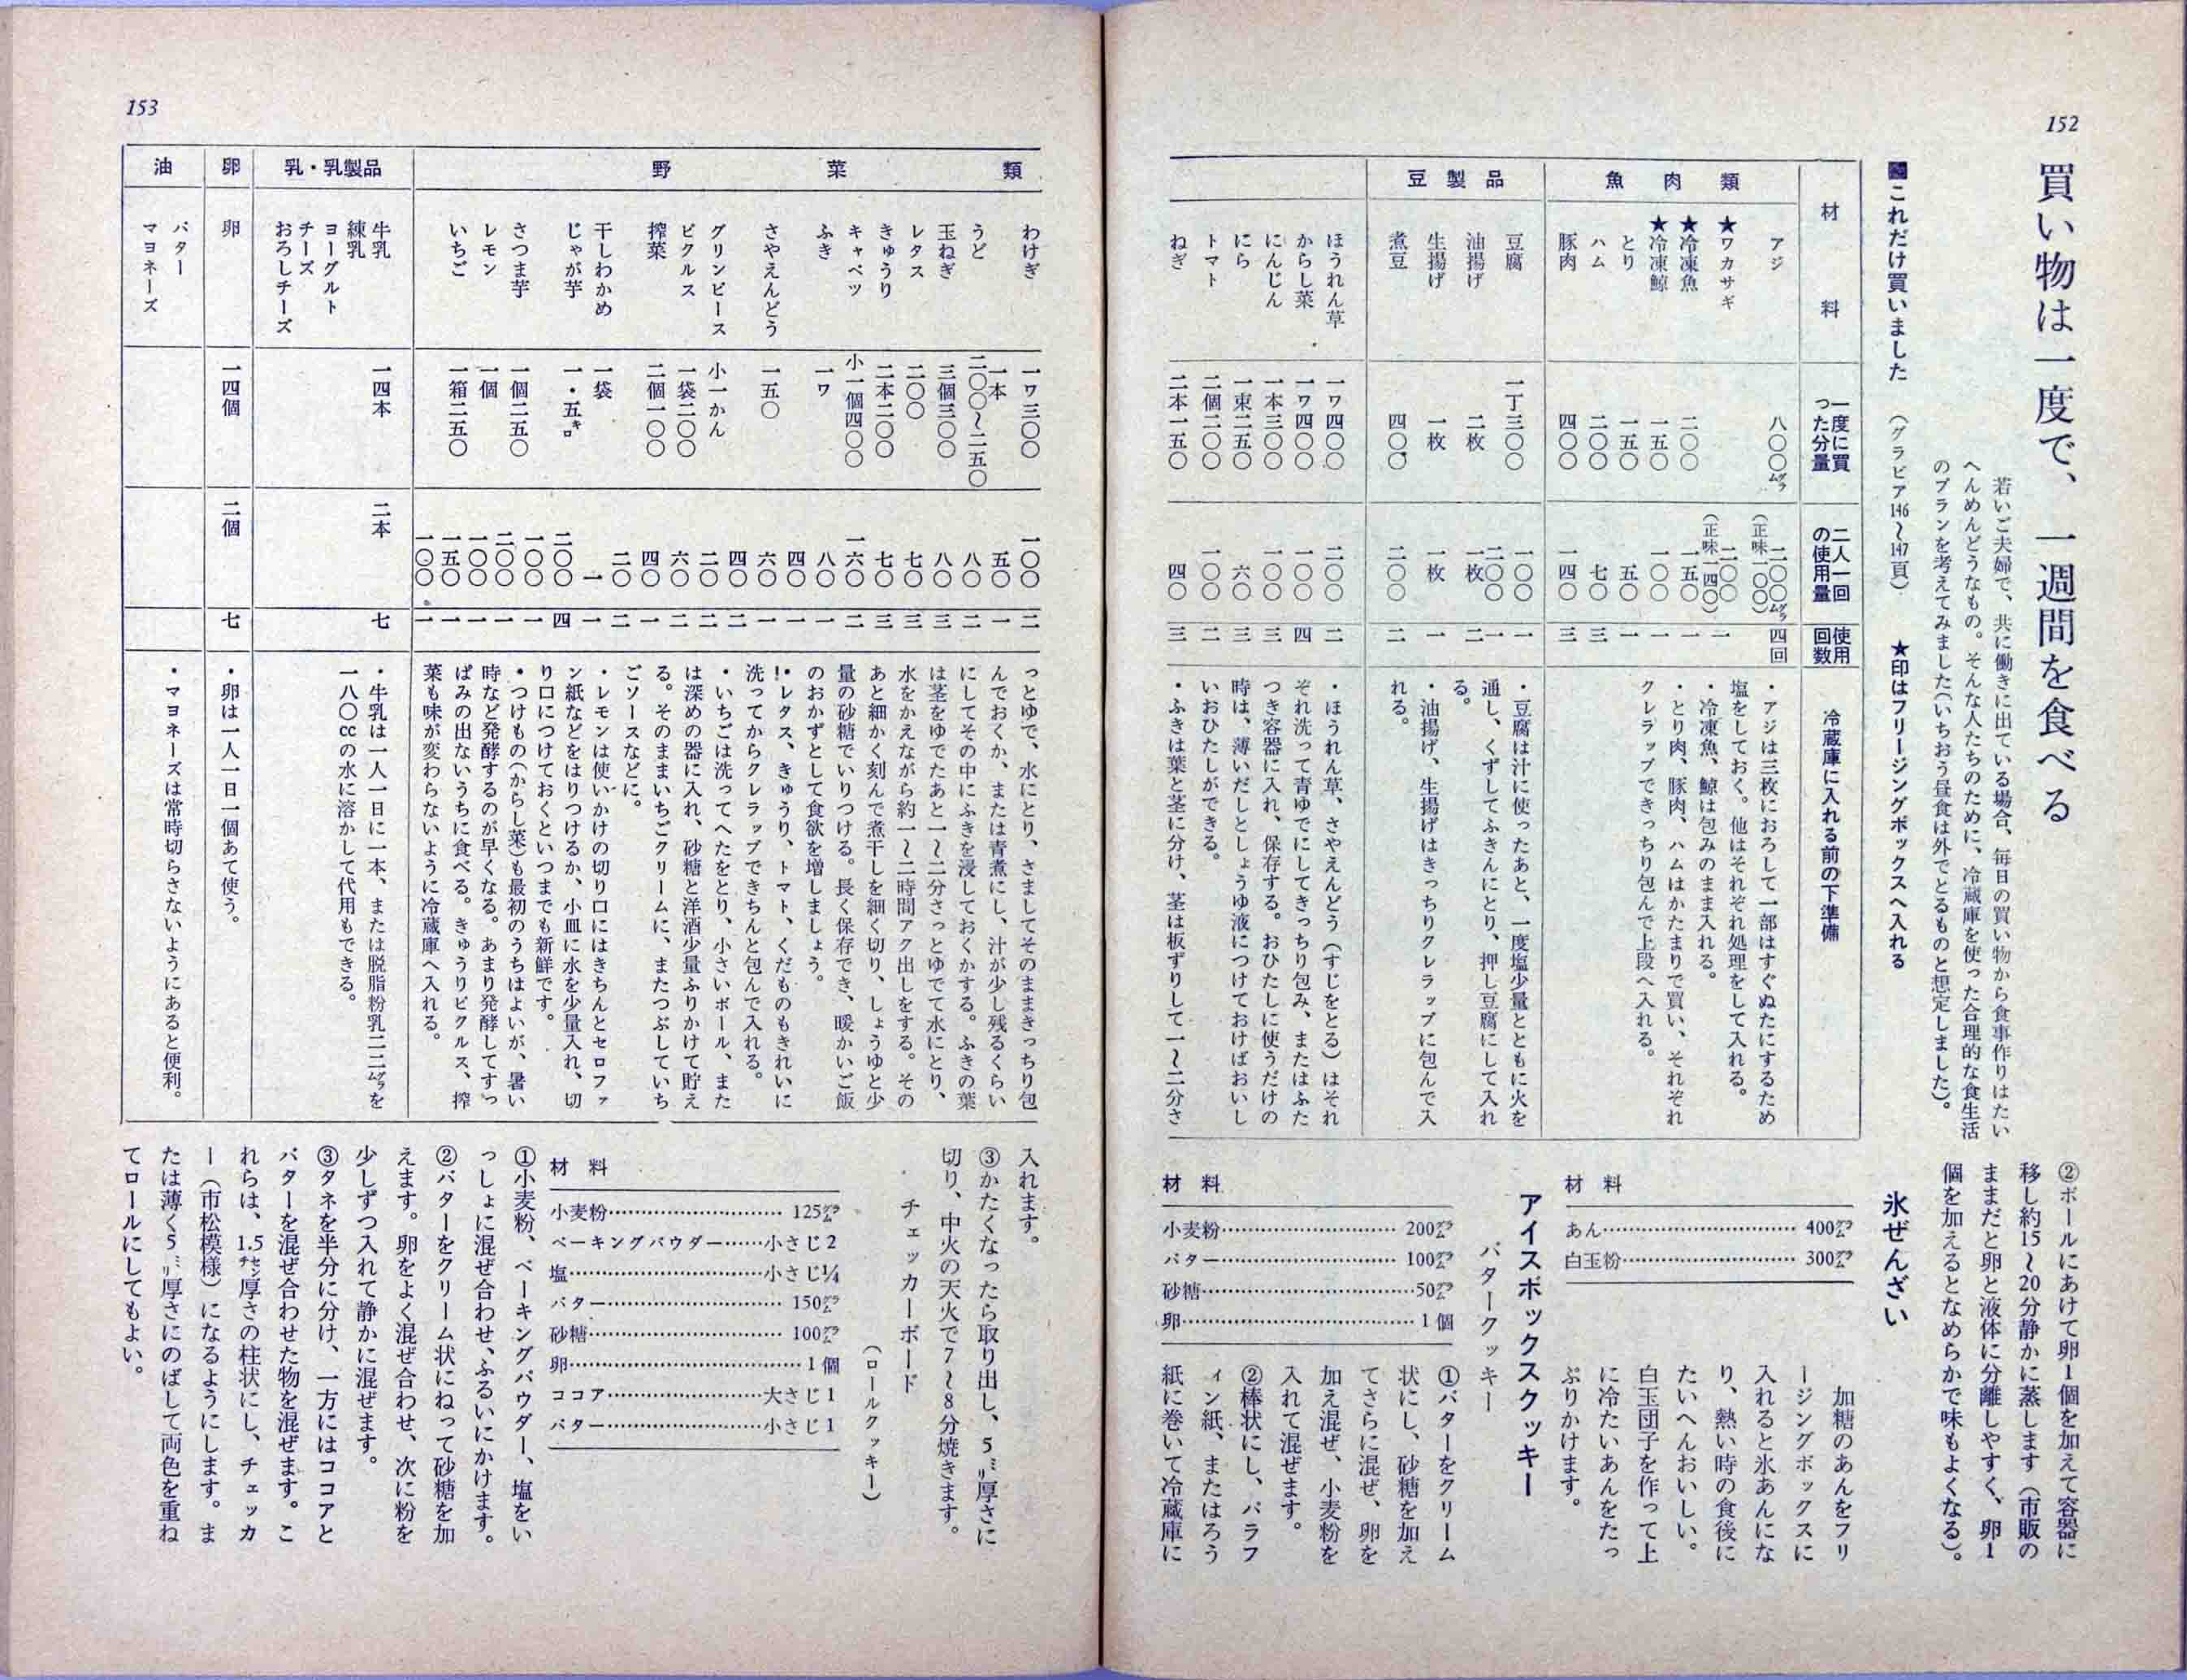 152
買い物は一度で、一週間を食べる
若いご夫婦で、共に働きに出ている場合、毎日の買い物から食事作りはたい
へんめんどうなもの。そんな人たちのために、冷蔵庫を使った合理的な食生活
のプランを考えてみました(いちおう昼食は外でとるものと想定しました)。
■これだけ買いました (グラビア146〜147頁) ★印はフリージングボックスへ入れる
材料
一度に買
った分量
二人一回
の使用量
使用
回数
冷蔵庫に入れる前の下準備
魚肉類
アジ
★ワカサギ
★冷凍魚
★冷凍鯨
とり
ハム
豚肉
八〇〇グラム
二〇〇
一五〇
一五〇
二〇〇
四〇〇
二〇〇グラム
(正味一〇〇)
二〇〇
(正味一四〇)
一五〇
一〇〇
五〇
七〇
一四〇
四回
一
一
一
一
三
三
・アジは三枚におろして一部はすぐぬたにするため
塩をしておく。他はそれぞれ処理をして入れる。
・冷凍魚、鯨は包みのまま入れる。
・とり肉、豚肉、ハムはかたまりで買い、それぞれ
クレラップできっちり包んで上段へ入れる。
豆製品
豆腐
油揚げ
生揚げ
煮豆
一丁三〇〇
二枚
一枚
四〇〇
一〇〇
二〇〇
一枚
一枚
二〇〇
一
一
二
一
二
・豆腐は汁に使ったあと、一度塩少量とともに火を
通し、くずしてふきんにとり、押し豆腐にして入れ
る。
・油揚げ、生揚げはきっちりクレラップに包んで入
れる。
ほうれん草
からし菜
にんじん
にら
トマト
ねぎ
一ワ四〇〇
一ワ四〇〇
一本三〇〇
一束二五〇
二個二〇〇
二本一五〇
二〇〇
一〇〇
一〇〇
六〇
一〇〇
四〇
二
四
三
三
二
三
・ほうれん草、さやえんどう(すじをとる)はそれ
ぞれ洗って青ゆでにしてきっちり包み、またはふた
つき容器に入れ、保存する。おひたしに使うだけの
時は、薄いだしとしょうゆ液につけておけばおいし
いおひたしができる。
・ふきは葉と茎に分け、茎は板ずりして一〜二分さ
②ボールにあけて卵1個を加えて容器に
移し約15〜20分静かに蒸します(市販の
ままだと卵と液体に分離しやすく、卵1
個を加えるとなめらかで味もよくなる)。
氷ぜんざい
材料
あん……400グラム
白玉粉……300グラム
加糖のあんをフリ
ージングボックスに
入れると氷あんにな
り、熱い時の食後に
たいへんおいしい。
白玉団子を作って上
に冷たいあんをたっ
ぷりかけます。
アイスボックスクッキー
バタークッキー
材料
小麦粉……200グラム
バター……100グラム
砂糖……50グラム
卵……1個
①バターをクリーム
状にし、砂糖を加え
てさらに混ぜ、卵を
加え混ぜ、小麦粉を
入れて混ぜます。
②棒状にし、パラフ
ィン紙、またはろう
紙に巻いて冷蔵庫に
153
野菜類
わけぎ
うど
玉ねぎ
レタス
きゅうり
キャベツ
ふき
さやえんどう
グリンピース
ピクルス
搾菜
干しわかめ
じゃが芋
さつま芋
レモン
いちご
一ワ三〇〇
一本
二〇〇〜二五〇
三個三〇〇
二〇〇
二本二〇〇
小一個四〇〇
一ワ
一五〇
小一かん
一袋二〇〇
二個一〇〇
一袋
一・五キロ
一個二五〇
一個
一箱二五〇
一〇〇
五〇
八〇
八〇
七〇
七〇
一六〇
八〇
四〇
六〇
四〇
二〇
六〇
四〇
二〇
一
二〇〇
一〇〇
二〇〇
一〇〇
一五〇
一〇〇
二
一
二
三
三
三
二
一
一
一
二
二
二
一
二
一
四
一
一
一
一
一
っとゆで、水にとり、さましてそのままきっちり包
んでおくか、または青煮にし、汁が少し残るくらい
にしてその中にふきを浸しておくかする。ふきの葉
は茎をゆでたあと一〜二分さっとゆでて水にとり、
水をかえながら約一〜二時間アク出しをする。その
あと細かく刻んで煮干しを細く切り、しょうゆと少
量の砂糖でいりつける。長く保存でき、暖かいご飯
のおかずとして食欲を増しましょう。
・レタス、きゅうり、トマト、くだものもきれいに
洗ってからクレラップできちんと包んで入れる。
・いちごは洗ってへたをとり、小さいボール、また
は深めの器に入れ、砂糖と洋酒少量ふりかけて貯え
る。そのままいちごクリームに、またつぶしていち
ごソースなどに。
・レモンは使いかけの切り口にはきちんとセロファ
ン紙などをはりつけるか、小皿に水を少量入れ、切
り口につけておくといつまでも新鮮です。
・つけもの(からし菜)も最初のうちはよいが、暑い
時など発酵するのが早くなる。あまり発酵してすっ
ぱみの出ないうちに食べる。きゅうりピクルス、搾
菜も味が変わらないように冷蔵庫へ入れる。
乳・乳製品
牛乳
練乳
ヨーグルト
チーズ
おろしチーズ
一四本
二本
七
・牛乳は一人一日に一本、または脱脂粉乳二二グラムを
一八〇ccの水に溶かして代用もできる。
卵
卵
一四個
二個
七
・卵は一人一日一個あて使う。
油
バター
マヨネーズ
・マヨネーズは常時切らさないようにあると便利。
入れます。
③かたくなったら取り出し、5ミリ厚さに
切り、中火の天火で7〜8分焼きます。
チェッカーボード
(ロールクッキー)
材料
小麦粉……125グラム
ベーキングパウダー……小さじ2
塩……小さじ¼
バター……150グラム
砂糖……100グラム
卵……1個
ココア……大さじ1
バター……小さじ1
①小麦粉、ベーキングパウダー、塩をい
っしょに混ぜ合わせ、ふるいにかけます。
②バターをクリーム状にねって砂糖を加
えます。卵をよく混ぜ合わせ、次に粉を
少しずつ入れて静かに混ぜます。
③タネを半分に分け、一方にはココアと
バターを混ぜ合わせた物を混ぜます。こ
れらは、1.5センチ厚さの柱状にし、チェッカ
ー(市松模様)になるようにします。ま
たは薄く5ミリ厚さにのばして両色を重ね
てロールにしてもよい。